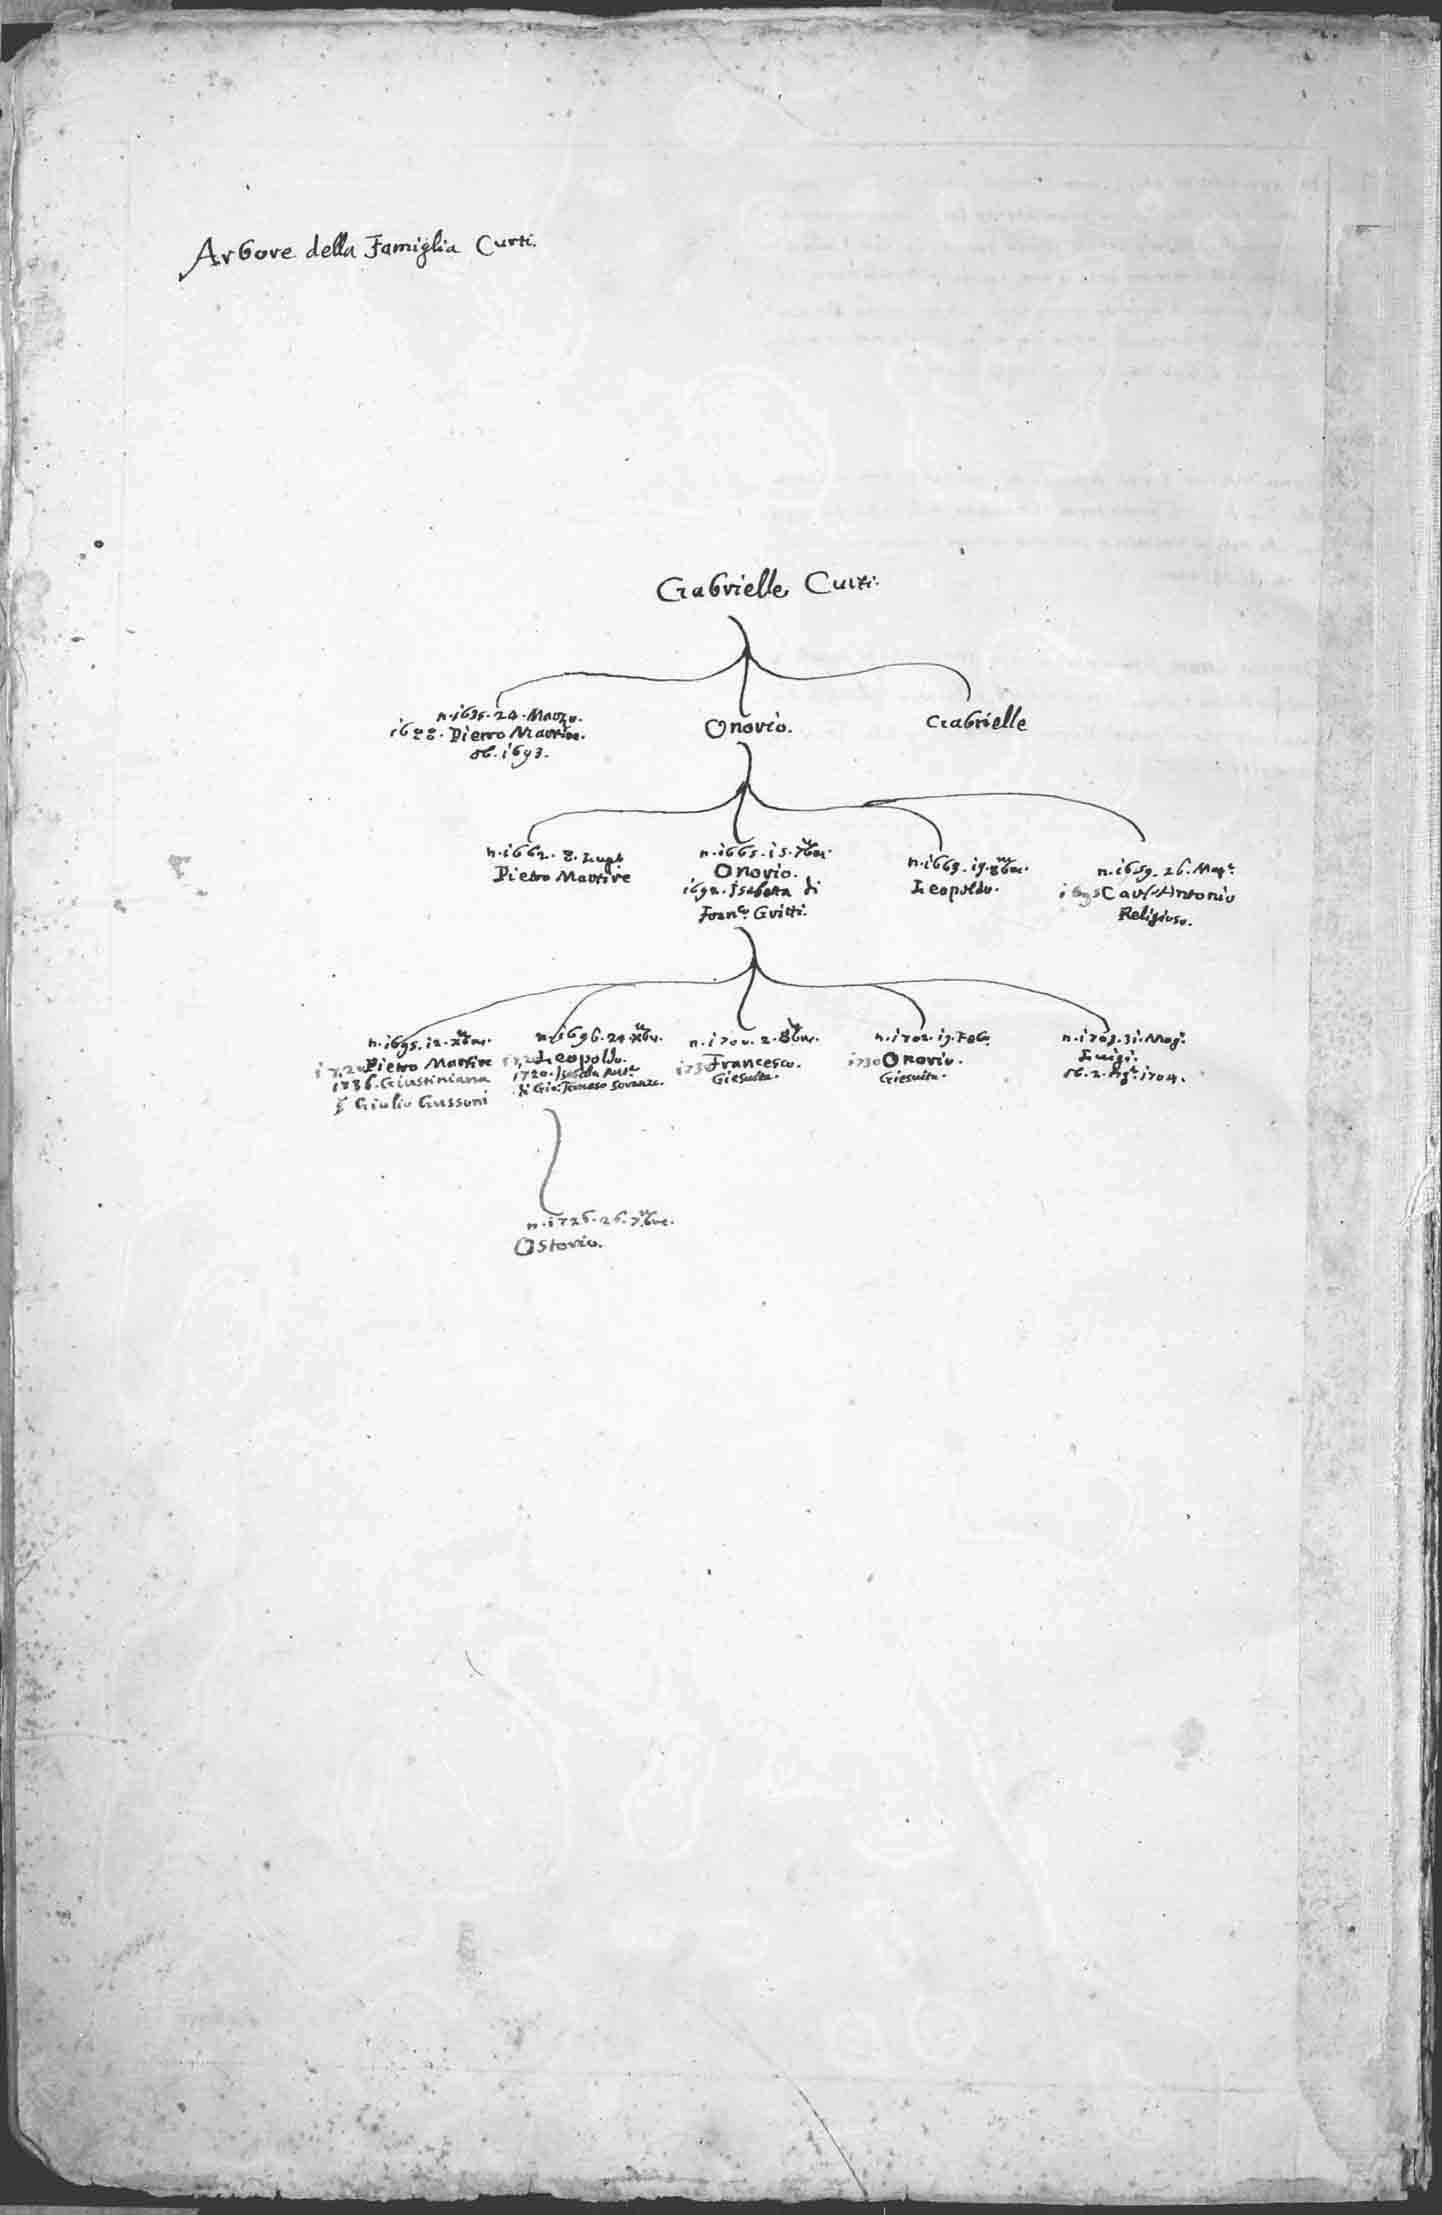 Arbore della Famiglia Curti.
Gabrielle Curti.
n. 1635. 24. Marzo.
1688. Pietro Martire.
ob. 1693.
Onorio.
Gabrielle
n. 1662. 8. Lugl.
Pietro Martire
n. 1665. 15. 7bre.
Onorio.
1692. Isabetta di
Franco. Gritti.
n. 1669. 19. 8bre.
Leopoldo.
n. 1659. 26. Mago.
Carl'Antonio
Religioso.
n. 1695. 12. Xbre.
Pietro Martire
1736. Giustiniana
Giulio Gussoni
n. 1696. 24. Xbre.
Leopoldo.
1720.
di Gio: Tomaso Soranzo.
n. 1700. 2. 8bre.
1730 Francesco.
Giesuita.
n. 1702. 19. Feb.
1730 Onorio.
Giesuita.
n. 1703. 31. Mago.
Luigi.
ob. 2. 1704.
n. 1726. 26. 7bre.
Ostorio.